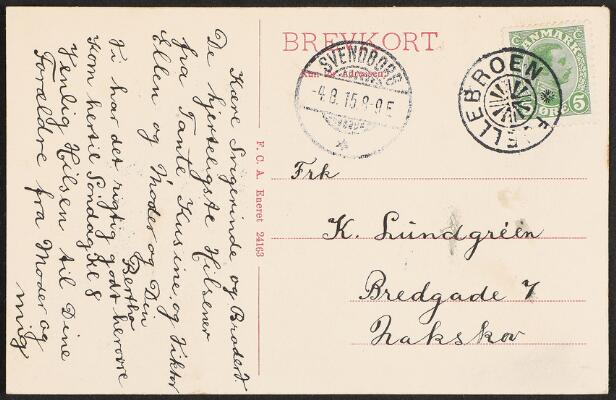 BREVKORT
(Kun til Adressen.)
SVENDBORG
-4.8.15 8-9E
ELLEBROEN
DANMARK
5 ØRE
Frk
K. Lundgréen
Bredgade 7
Nakskov
F. C. A. Eneret 24163
Kære Svigerinde og Broder!
De hjerteligste Hilsener
fra Tante, Kusine og Viktor
Ellen og Moder og Din
Bertha
Vi har det rigtig godt herovre
kom hertil Søndag Kl 8
Venlig Hilsen til Dine
Forældre fra Moder og
mig